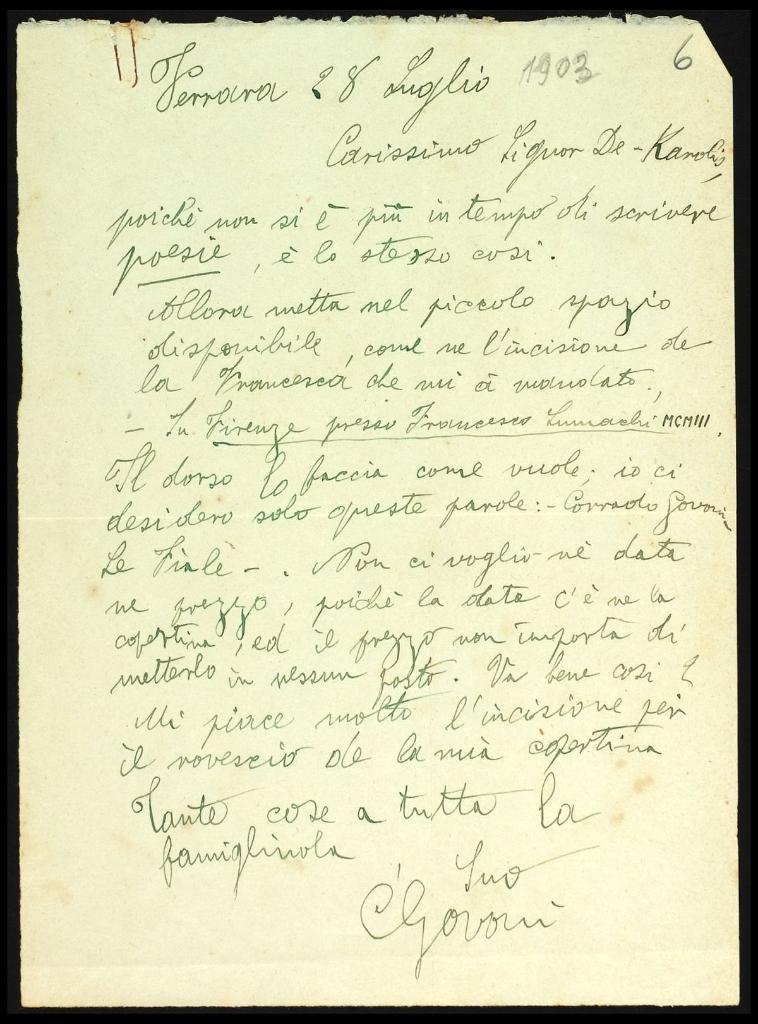 6
1903
Ferrara 28 Luglio
Carissimo Signor De-Karolis,
poichè non si è più in tempo di scrivere
poesie, è lo stesso così.
Allora metta nel piccolo spazio
disponibile, come ne l'incisione de
la Francesca che mi à mandato,
- In Firenze presso Francesco Lumachi MCMIII.
Il dorso lo faccia come vuole; io ci
desidero solo queste parole:- Corrado Govoni-
Le Fiale-. Non ci voglio nè data
ne prezzo, poichè la data c'è ne la
copertina, ed il prezzo non importa di
metterlo in nessun posto. Va bene così?
Mi piace molto l'incisione per
il rovescio de la mia copertina
Tante cose a tutta la
famigliuola
Suo
CGovoni